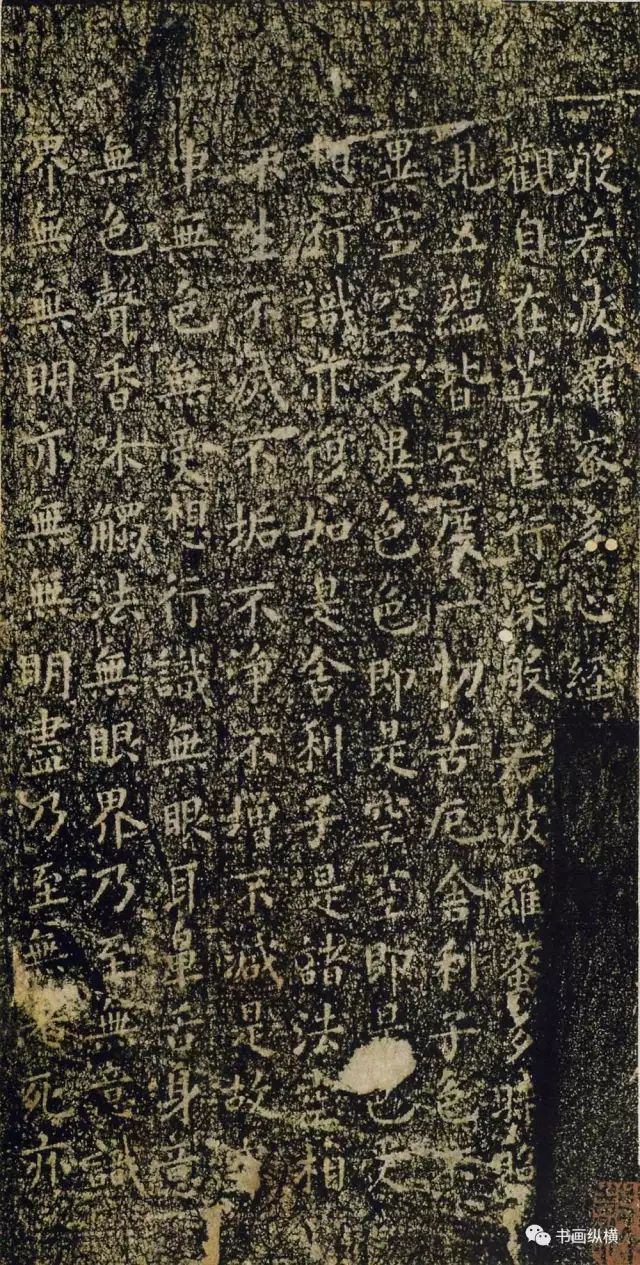 般若波羅蜜多心經
觀自在菩薩行深般若波羅蜜多時照
見五蘊皆空度一切苦厄舍利子色不
異空空不異色色即是空空即是色受
想行識亦復如是舍利子是諸法空相
不生不滅不垢不淨不增不減是故
中無色無受想行識無眼耳鼻舌身意
無色聲香味觸法無眼界乃至無意識
界無無明亦無無明盡乃至無老死亦
书画纵横